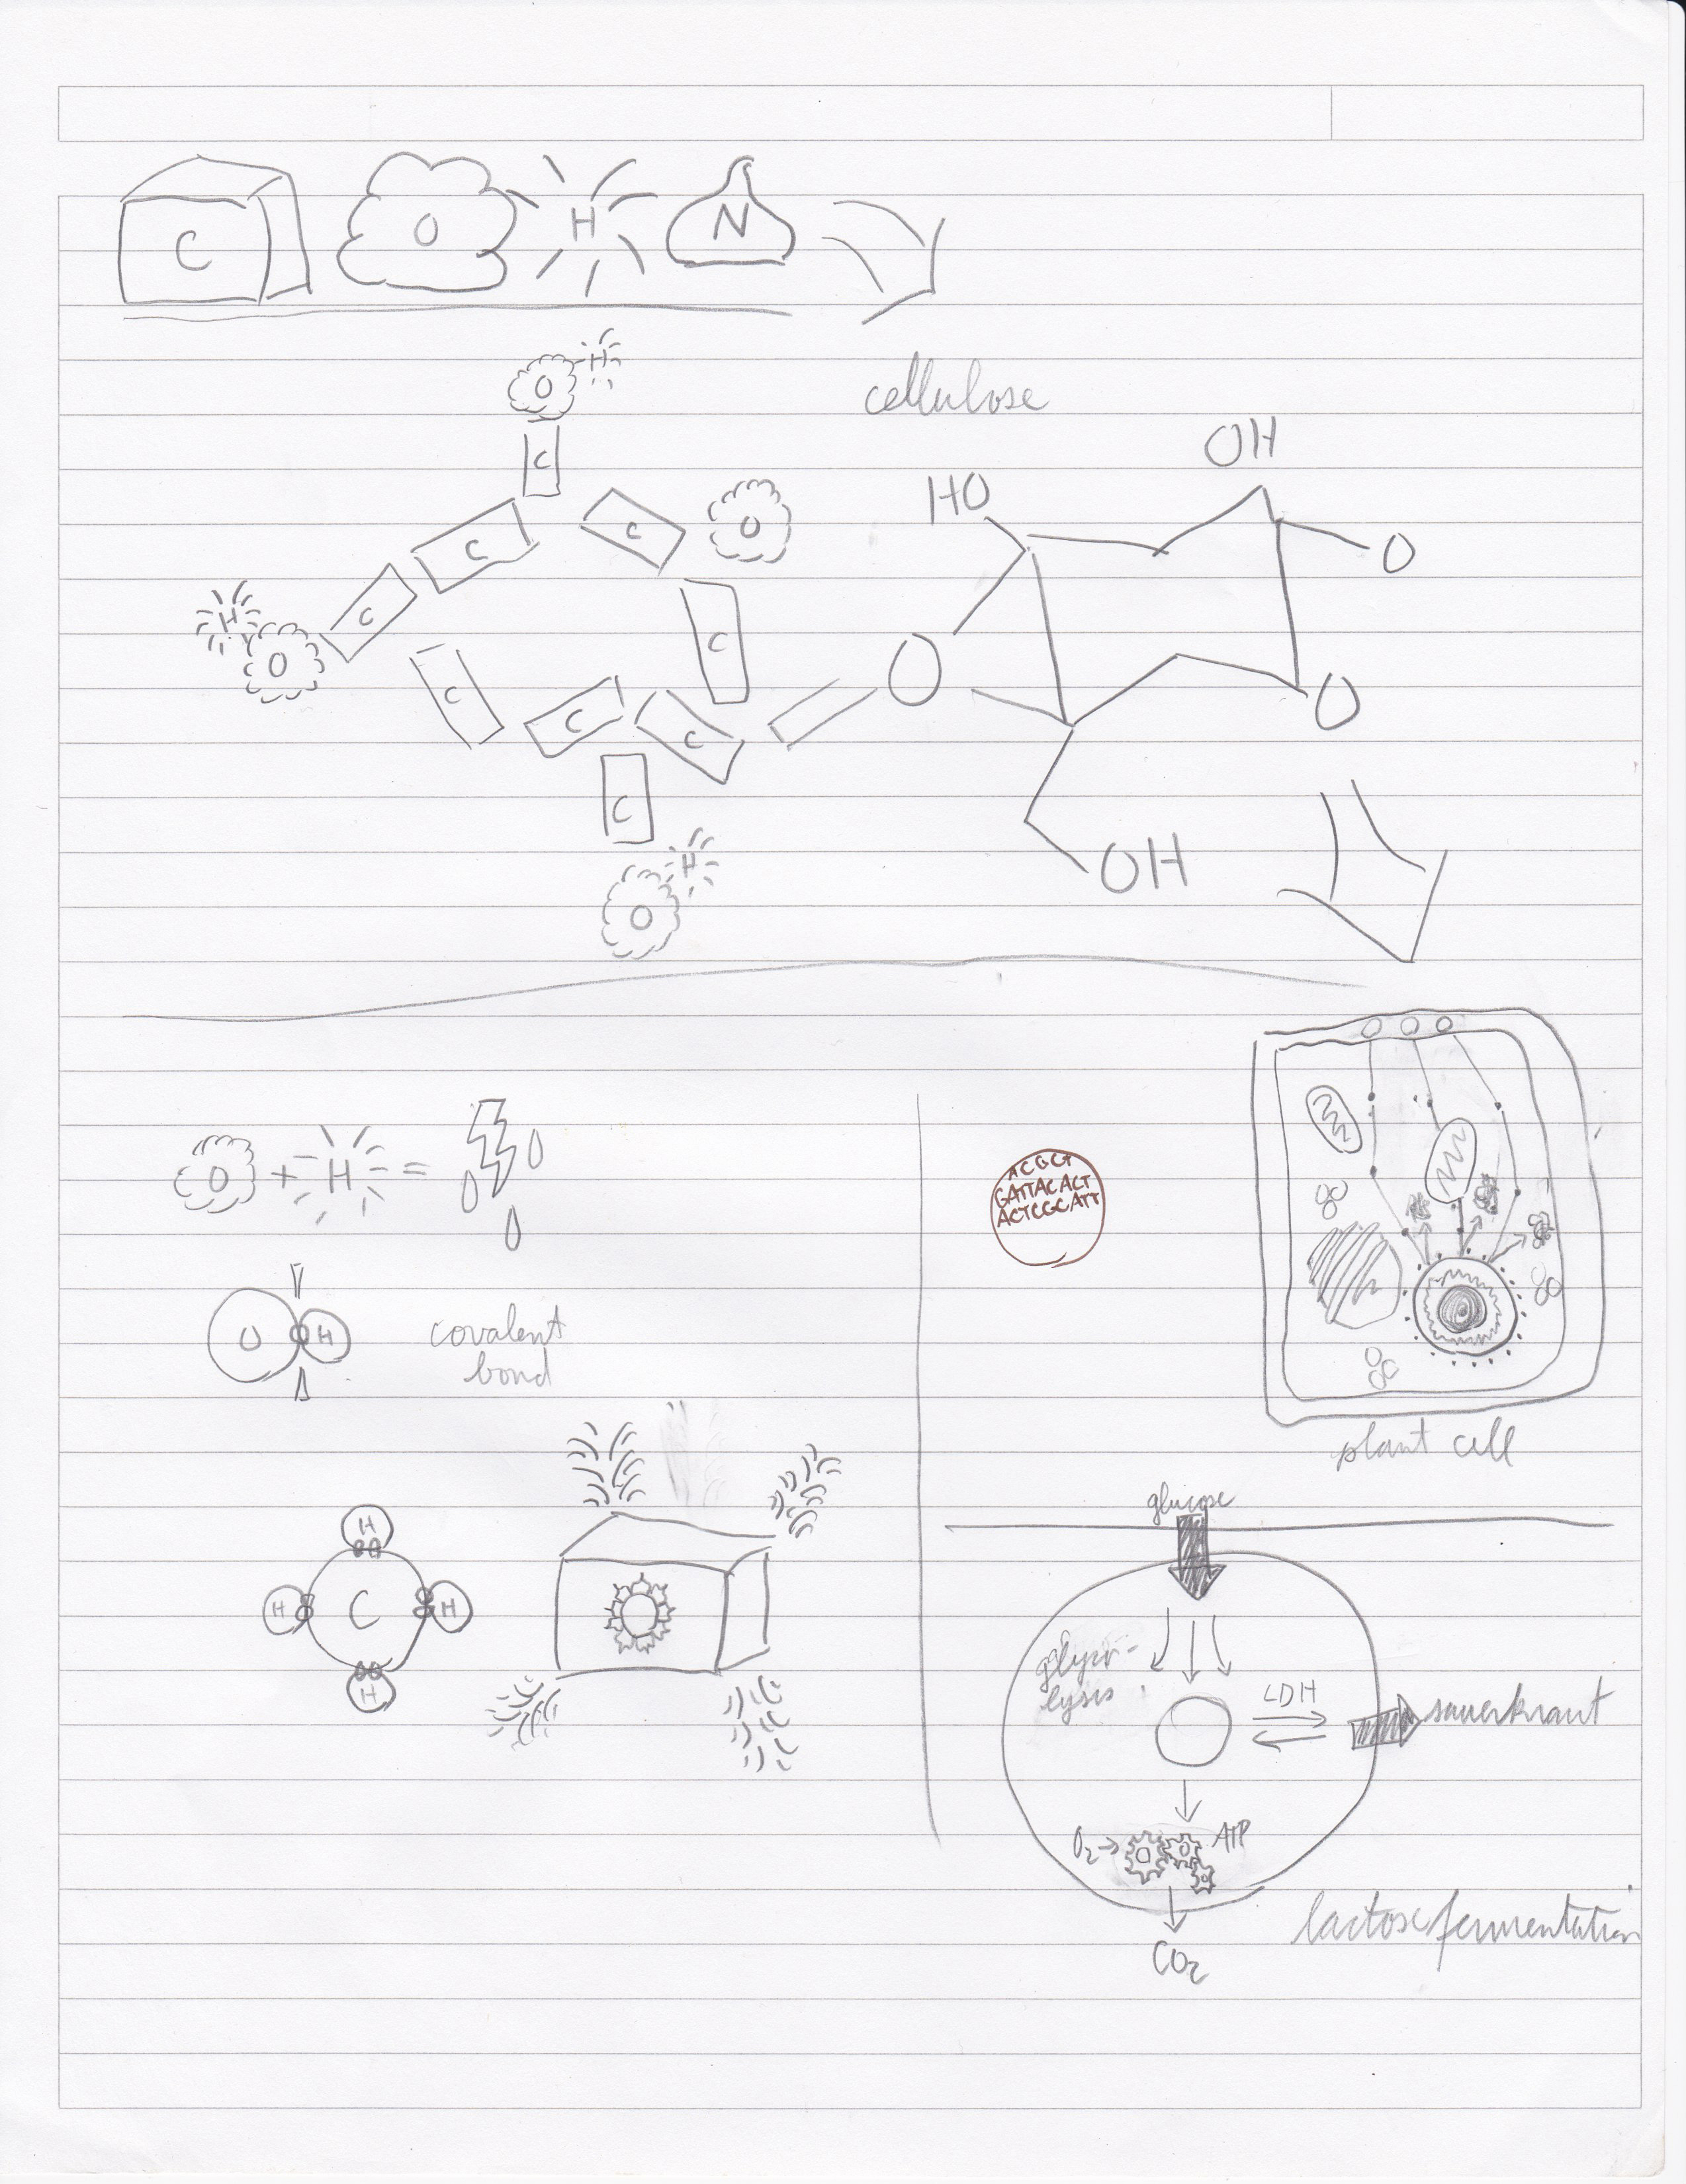 C O H N
O H
cellulose
C
C C O
C
H O
C
C
C C
C
H
O
OH
HO
O
O
O
OH
O + H =
O H
covalent
bond
ACGCT
GATTACACT
ACTCGCATT
plant cell
H
H C H
H
glucose
glyco-
lysis
LDH
sauerkraut
O2 → ATP
CO2
lactose fermentation